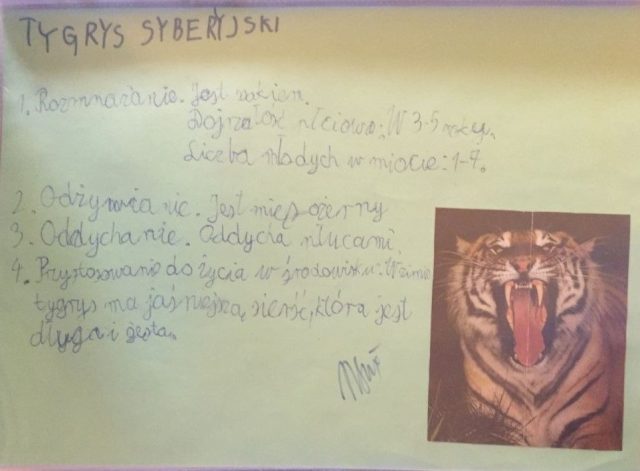 TYGRYS SYBERYJSKI
1. Rozmnażanie. Jest ssakiem.
Dojrzałość płciowa: W 3-5 roku.
Liczba młodych w miocie: 1-7.
2. Odżywianie. Jest mięsożerny
3. Oddychanie. Oddycha płucami
4. Przystosowanie do życia w środowisku: W zimie
tygrys ma jaśniejszą sierść, która jest
długa i gęsta.